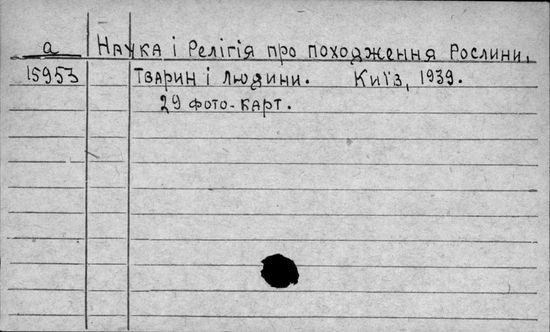 а Наука і Релігія про походження Рослини,
15953 Тварин і людини. Київ, 1939.
29 фото-карт.